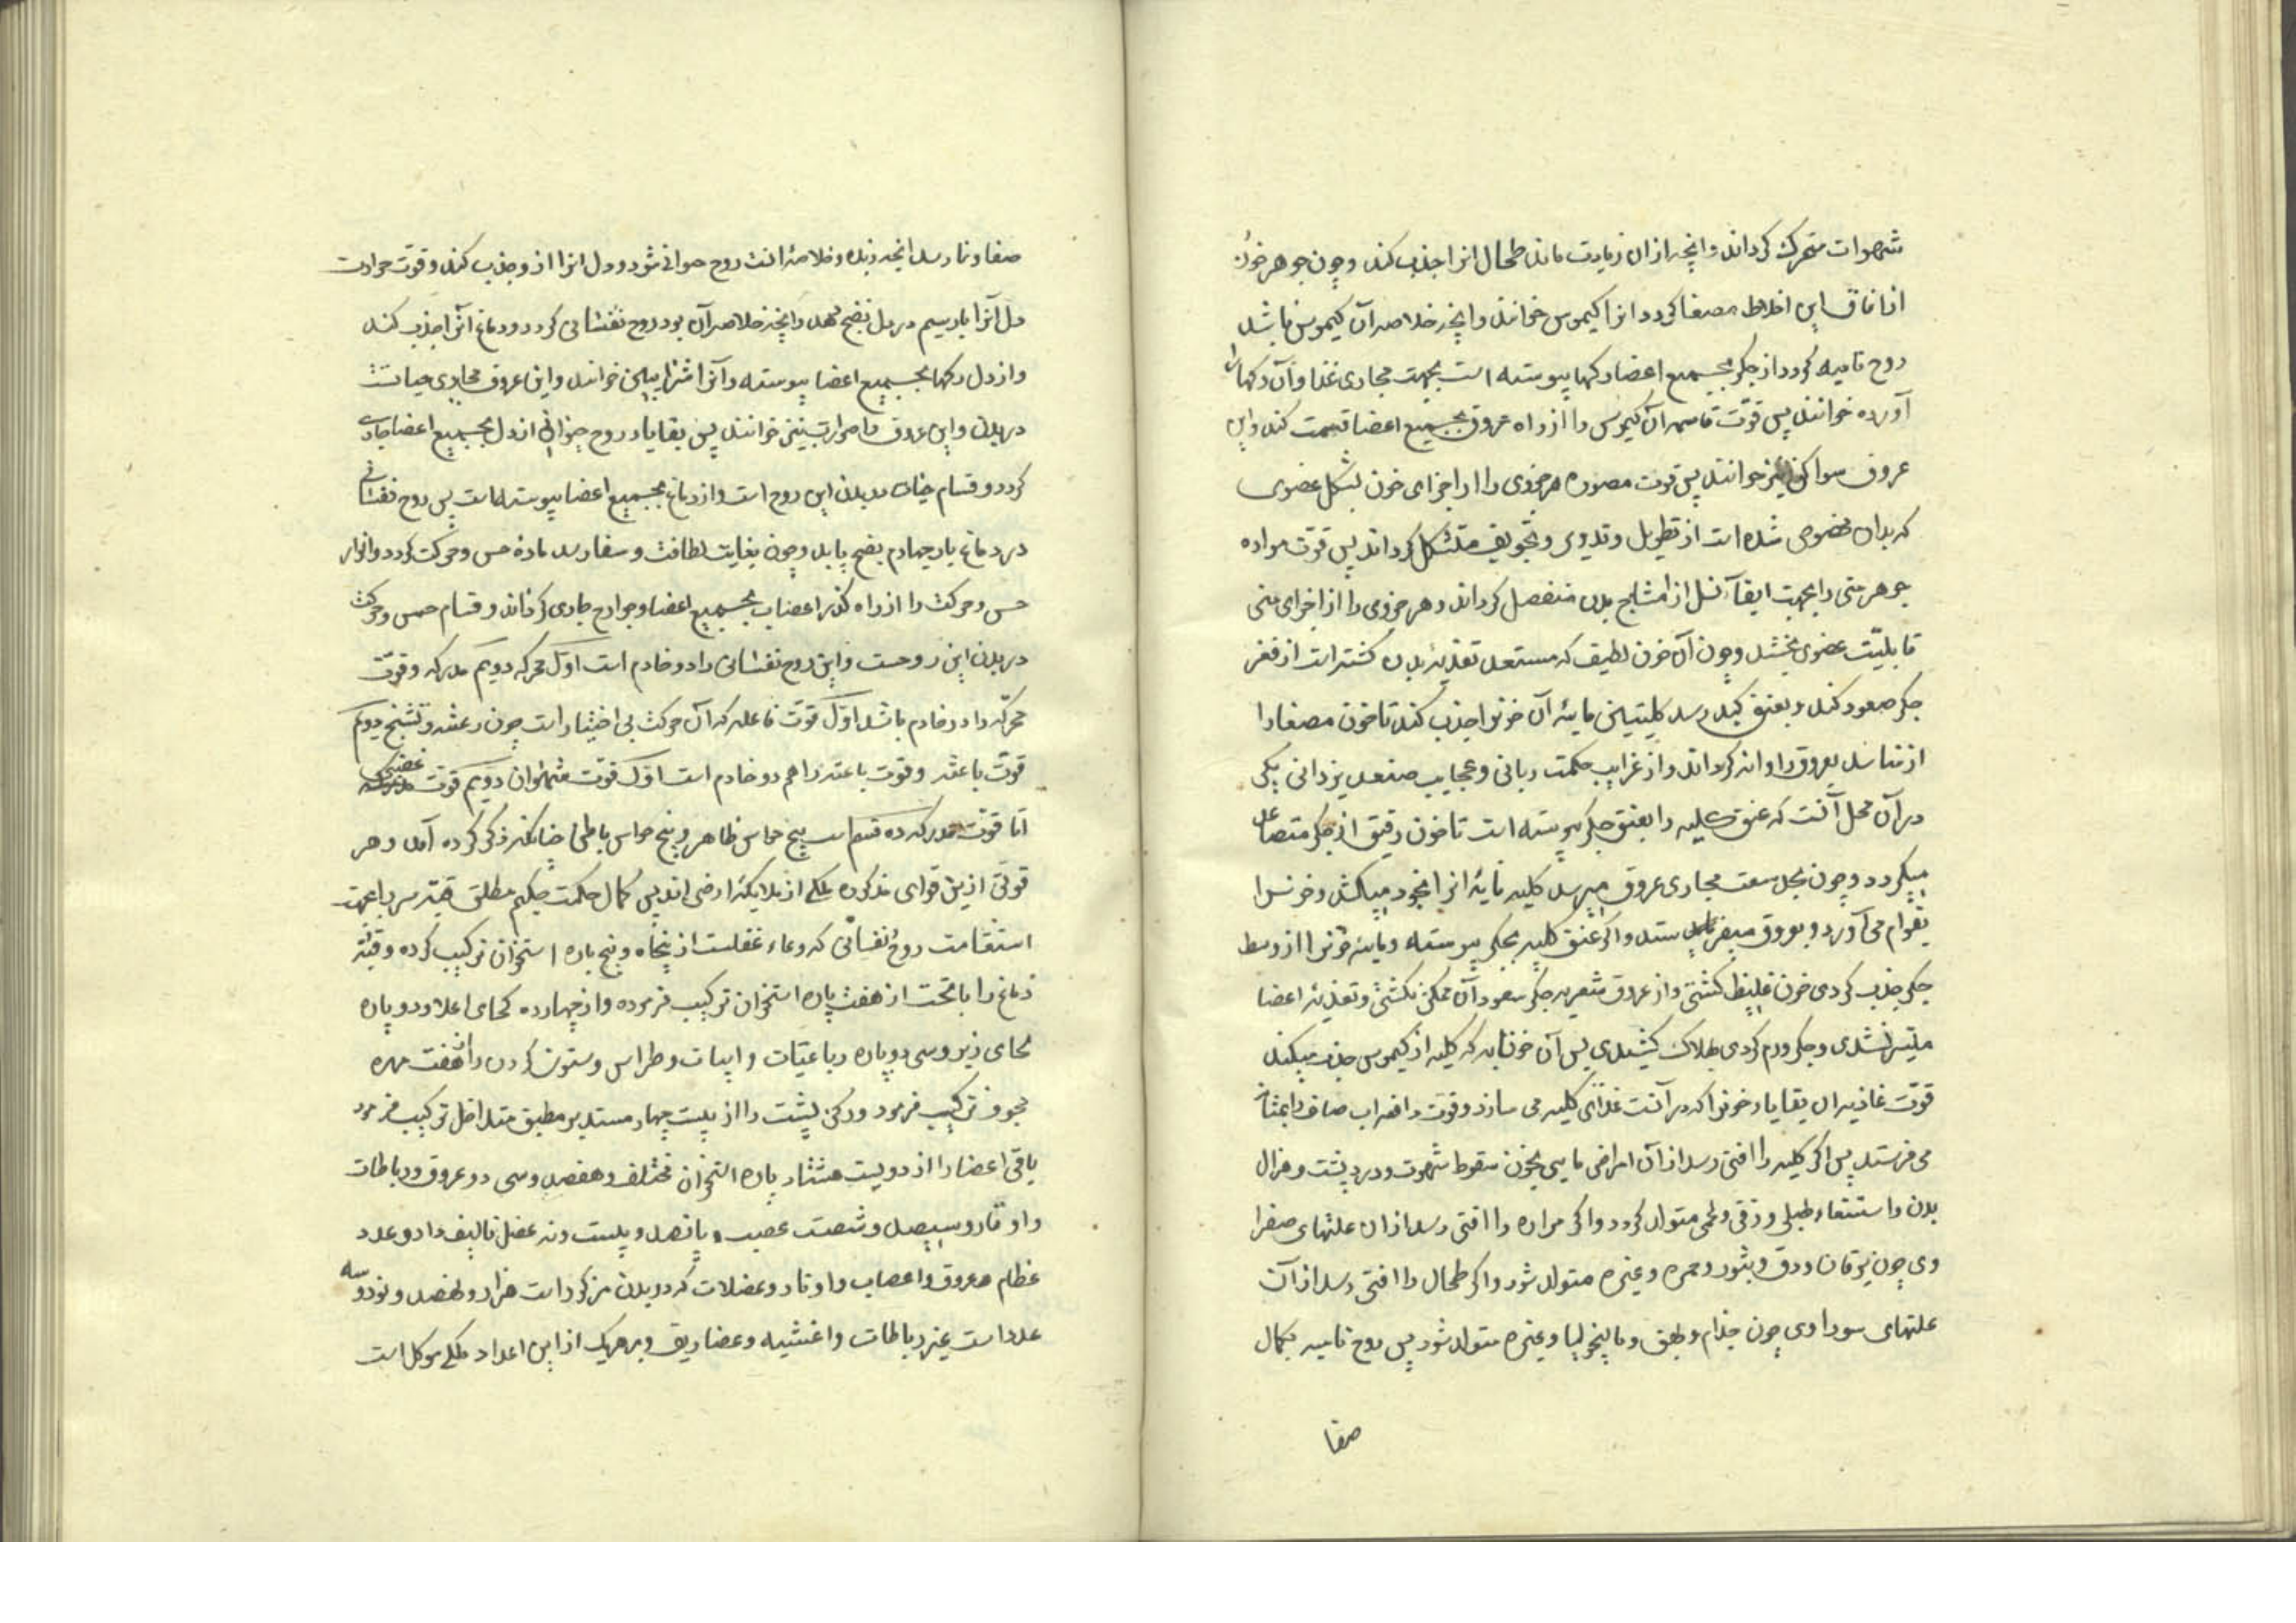 شهوات متحرک کرداند وانچه ازان زیادت ماند طحال انرا جذب کند وچون جوهر خون
از اتفاق این اخلاط مصفا کردد انرا کیموس خوانند وانچه خلاصه آن کیموس باشد
روح نامیه کردد از جکر بجمیع اعضا رکها پیوسته است بجهت مجاری غذا وآن رکها را
آورده خوانند پس قوت قاسمه آن کیموس را از راه عروق بجمیع اعضا قسمت کند واین
عروق سواکن نیز خوانند پس قوت مصوره هر جزوی را از اجزای خون بشکل عضوی
که بدان مخصوص شده است از تطویل وتدویر وتجویف متشکل کرداند پس قوت مولده
جوهر منی را بجهت ابقآء نسل از امشاج بدن منفصل کرداند وهر جزوی را از اجزای منی
قابلیّت عضوی بخشد وچون آن خون لطیف که مستعد تغذیهٔ بدن کشته است از قعر
جکر صعود کند وبعنق کبد رسد کلیتین مائیهٔ آن خونرا جذب کند تا خون مصفا را
از تناسل بعروق روانه کرداند واز غرایب حکمت ربانی وعجایب صنع یزدانی یکی
در آن محل آنست که عنق کلیه را بعنق جکر پیوسته است تا خون رقیق از جکر متصاعد
میکردد وچون بمحل سعت مجاری عروق میرسد کلیه مائیهٔ انرا بخود میکشد وخونرا
بقوام می آورد وبعروق میفرستد واکر عنق کلیه بجکر پیوسته ومائیهٔ خونرا از وسط
جکر جذب کردی خون غلیظ کشتی واز عروق شعریه جکر صعود آن ممکن نکشتی وتغذیهٔ اعضا
میّسر نشدی وجکر ورم کردی بهلاک کشیدی پس آن خونابه که کلیه از کیموس جذب میکند
قوّت غاذیه ان بقایاء خونرا که در آنست غذای کلیه می سازد وقوت دافعه اب صاف را بمثانه
می فرستد پس اکر کلیه را افتی رسد از آن امراض مایی چون سقوط شهوت ودرد پشت وهزال
بدن واستسقاء طبلی وزقی ولحمی متولد کردد واکر مراره را افتی رسد ازان علتهای صفرا
وی چون یرقان ودق وبثور وحمره وغیره متولد شود واکر طحال را افتی رسد از آن
علتهای سوداوی چون جذام وبهق ومالیخولیا وغیره متولد شود پس روح نامیه بکمال
صفا
صفا ونما رسد انچه زبده وخلاصهٔ انست روح حیوانی شود ودل انرا ازو جذب کند وقوت حرارت
دل آنرا بار سیم در دل نضج دهد وانچه خلاصه آن بود روح نفسانی کردد ودماغ آنرا جذب کند
واز دل رکها بجمیع اعضا پیوسته وآنرا شرایین خوانند واین عروق مجاری حیاتست
در بدن واین عروق را ضوارب نیز خوانند پس بقایاء روح حیوانی از دل بجمیع اعضا جاری
کردد وقسام حیات در بدن این روح است واز دماغ بجمیع اعضا پیوسته است پس روح نفسانی
در دماغ بار چهارم نضج یابد وچون بغایت لطافت وصفا رسد مادهٔ حس وحرکت کردد وانوار
حس وحرکت را از راه کذر اعصاب بجمیع اعضا وجوارح جاری کرداند وقسام حس وحرکت
در بدن این روحست واین روح نفسانی را دو خادم است اوّل محرکه دویم مدرکه وقوّت
محرّکه را دو خادم باشد اوّل قوّت فاعله که آن حرکت بی اختیار است چون رعشه وتشنج دویم
قوّت باعثه وقوت باعثه را هم دو خادم است اوّل قوّت شهوانی دویم قوّت غضبی
امّا قوّت مدرکه ده قسم است پنج حواس ظاهر وپنج حواس باطن چنانکه ذکر کرده آمد وهر
قوتی ازین قوای مذکوره ملکی از ملایکهٔ ارضی اند پس کمال حکمت حکیم مطلق قبّه سر را بجهت
استقامت روح نفسانی که وعاء عقلست از پنجاه وپنج پاره استخوان ترکیب کرده وقبّهٔ
دماغ را با تحت از هفت پاره استخوان ترکیب فرموده واز چهارده لحای اعلا ودو پاره
لحای زیر وسی دو پاره رباعیّات وانیاب وطراس وستون کردن را از هفت مهره
مجوف ترکیب فرمود ورکن پشت را از بیست چهار مستدیر مطبق متداخل ترکیب فرمود
باقی اعضا را از دویست هشتاد پاره استخوان مختلف وهفصد وسی دو عروق ورباطات
واوتار وسیصد وشصت عصب وپانصد وبیست ونه عضل تالیف داد وعدد
عظام وعروق واعصاب واوتار وعضلات که در بدن مرکوز است هزار ونهصد ونود وسه
عدد است غیر رباطات واغشیه وغضاریف وبر هریک از این اعداد ملکی موکل است